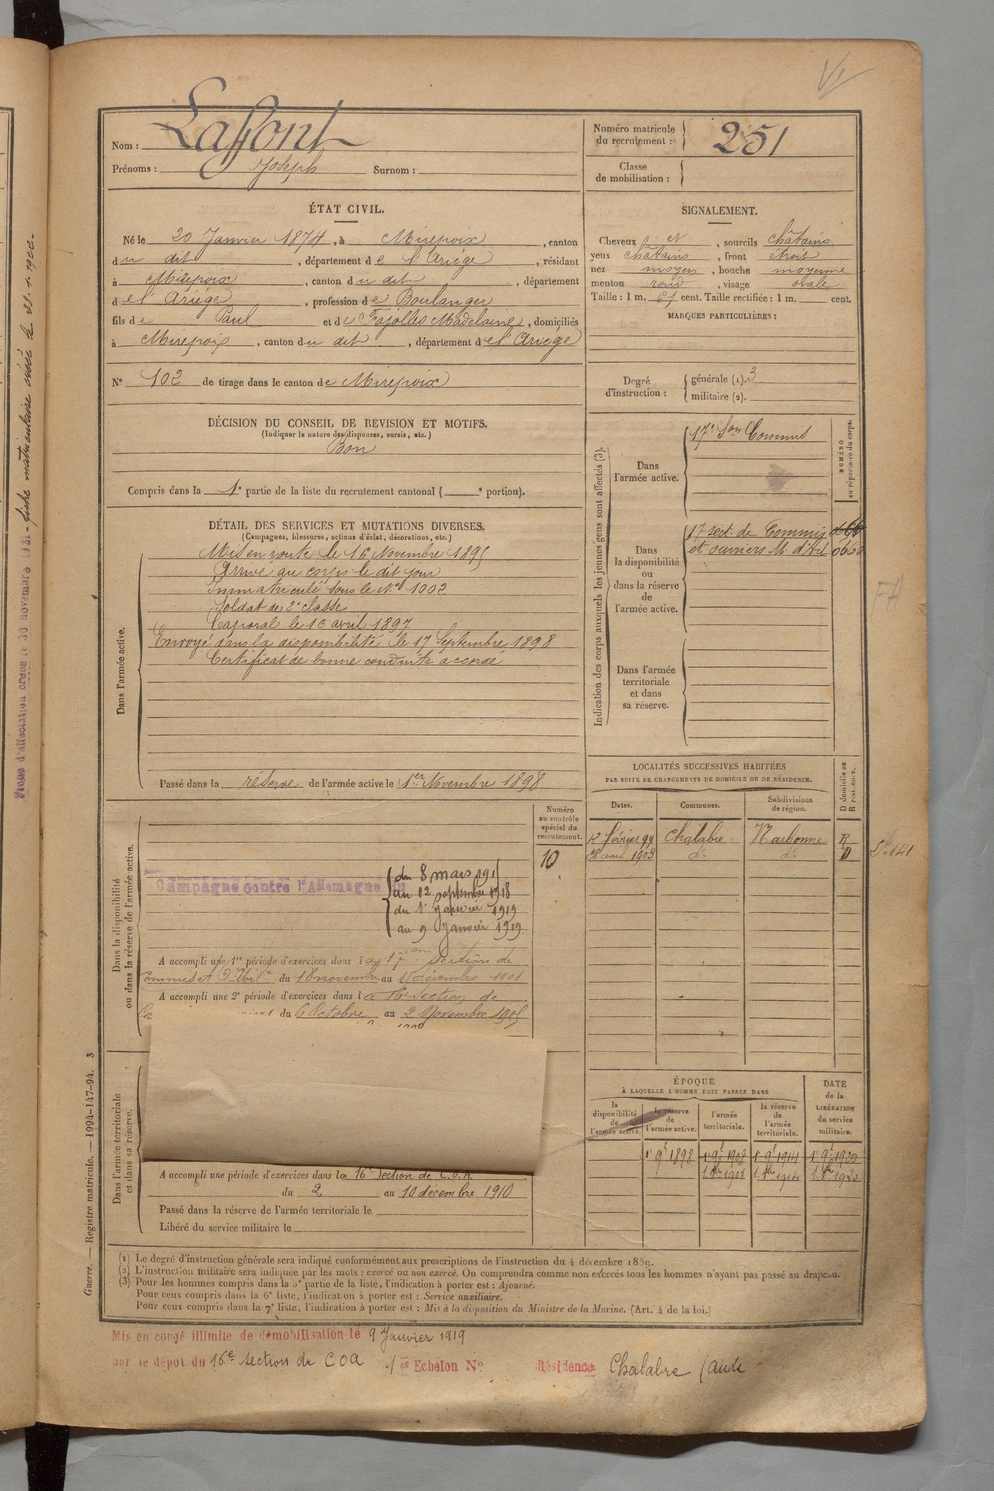 Nom : Lafont
Prénoms : Joseph Surnom :
Numéro matricule du recrutement : 251
Classe de mobilisation :
ÉTAT CIVIL.
Né le 20 Janvier 1874, à Mirepoix, canton
du dit, département de l'Ariège, résidant
à Mirepoix, canton du dit, département
de l'Ariège, profession de Boulanger
fils de Paul et de Fajolles Madelaine, domiciliés
à Mirepoix, canton du dit, département de l'Ariège
N° 102 de tirage dans le canton de Mirepoix
SIGNALEMENT.
Cheveux et, sourcils châtains
yeux châtains, front étroit
nez moyen, bouche moyenne
menton rond, visage ovale
Taille : 1 m. cent. Taille rectifiée : 1 m. cent.
MARQUES PARTICULIÈRES :
Degré d'instruction : générale (1). 3
militaire (2).
DÉCISION DU CONSEIL DE REVISION ET MOTIFS.
(Indiquer la nature des dispenses, sursis, etc.)
Bon
Compris dans la 1e partie de la liste du recrutement cantonal ( e portion).
DÉTAIL DES SERVICES ET MUTATIONS DIVERSES.
(Campagnes, blessures, actions d'éclat, décorations, etc.)
Dans l'armée active.
Mis en route le 16 Novembre 1895
Arrivé au corps le dit jour
Immatriculé sous le N° 1002
Soldat de 2e classe
Caporal le 13 avril 1897
Envoyé dans la disponibilité le 17 Septembre 1898
Certificat de bonne conduite accordé
Passé dans la réserve de l'armée active le 1er Novembre 1898
Indication des corps auxquels les jeunes gens sont affectés (3).
NUMÉRO au répertoire du corps.
Dans l'armée active.
17e Son Commis
Dans la disponibilité ou dans la réserve de l'armée active.
17 sect. de Commis
et ouvriers M. d'Ad
Dans l'armée territoriale et dans sa réserve.
LOCALITÉS SUCCESSIVES HABITÉES
PAR SUITE DE CHANGEMENTS DE DOMICILE OU DE RÉSIDENCE.
Dates. Communes. Subdivisions de région. D domicile ou R résidence.
12 février 99 Chalabre Narbonne R
28 avril 1903 do do D
Dans la disponibilité ou dans la réserve de l'armée active.
Numéro au contrôle spécial du recrutement.
10
Campagne contre l'Allemagne
du 8 mars 191
au 12 septembre 1918
du 1er janvier 1919
au 9 Janvier 1919
A accompli une 1re période d'exercices dans la 17 section de
du 18 novembre au décembre 1901
A accompli une 2e période d'exercices dans la section de
du 6 Octobre au 2 Novembre 1905
Dans l'armée territoriale et dans sa réserve.
A accompli une période d'exercices dans la 16e Section de C.O.A.
du 2 au 10 decembre 1910
Passé dans la réserve de l'armée territoriale le
Libéré du service militaire le
ÉPOQUE
À LAQUELLE L'HOMME DOIT PASSER DANS
la disponibilité de l'armée active. la réserve de l'armée active. l'armée territoriale. la réserve de l'armée territoriale.
DATE de la LIBÉRATION du service militaire.
1 9e 1898 1 9e 1908 1 9e 1914 1 9e 1920
(1) Le degré d'instruction générale sera indiqué conformément aux prescriptions de l'instruction du 4 décembre 1889.
(2) L'instruction militaire sera indiquée par les mots : exercé ou non exercé. On comprendra comme non exercés tous les hommes n'ayant pas passé au drapeau.
(3) Pour les hommes compris dans la 5e partie de la liste, l'indication à porter est : Ajourné.
Pour ceux compris dans la 6e liste, l'indication à porter est : Service auxiliaire.
Pour ceux compris dans la 7e liste, l'indication à porter est : Mis à la disposition du Ministre de la Marine. (Art. 4 de la loi.)
Mis en congé illimité de démobilisation le 9 Janvier 1919
par le dépôt du 16e Section de COA 1er Echelon N° Résidence Chalabre (Aude
Guerre. — Registre matricule. — 1994-147-94. 3